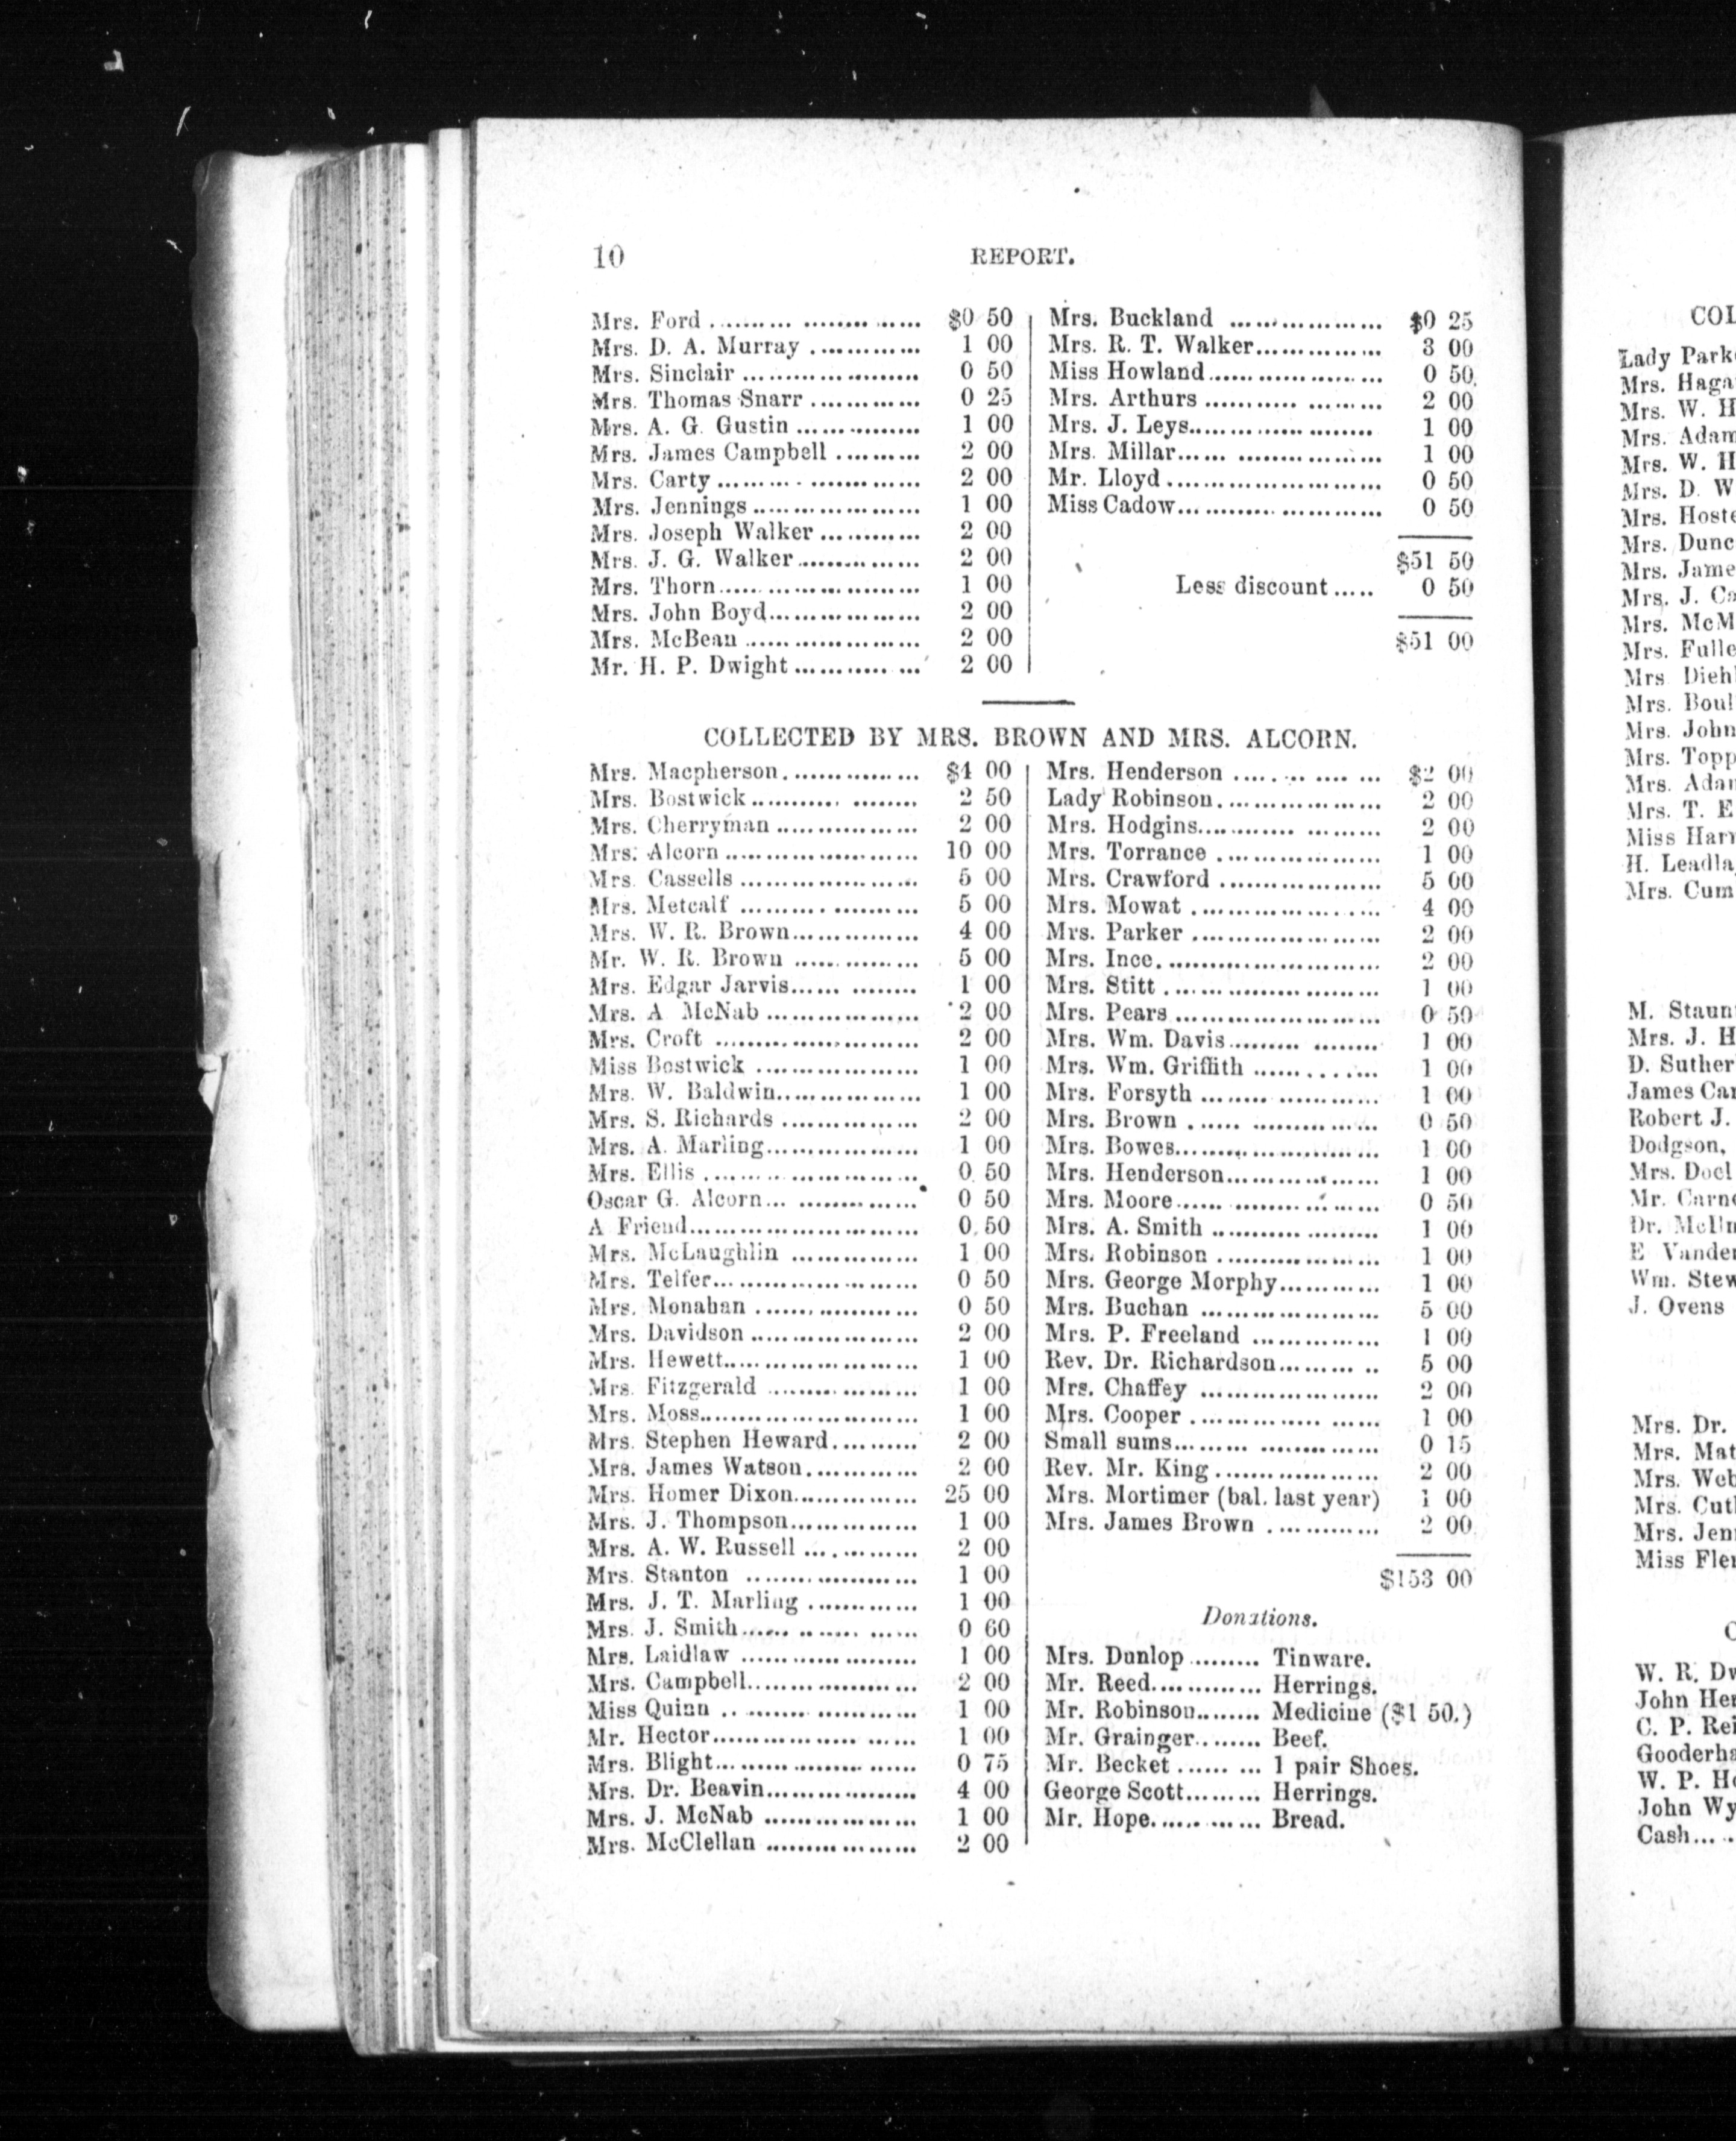 10 REPORT.
Mrs. Ford $0 50
Mrs. D. A. Murray 1 00
Mrs. Sinclair 0 50
Mrs. Thomas Snarr 0 25
Mrs. A. G. Gustin 1 00
Mrs. James Campbell 2 00
Mrs. Carty 2 00
Mrs. Jennings 1 00
Mrs. Joseph Walker 2 00
Mrs. J. G. Walker 2 00
Mrs. Thorn 1 00
Mrs. John Boyd 2 00
Mrs. McBean 2 00
Mr. H. P. Dwight 2 00
Mrs. Buckland $0 25
Mrs. R. T. Walker 3 00
Miss Howland 0 50
Mrs. Arthurs 2 00
Mrs. J. Leys 1 00
Mrs. Millar 1 00
Mr. Lloyd 0 50
Miss Cadow 0 50
$51 50
Less discount 0 50
$51 00
COLLECTED BY MRS. BROWN AND MRS. ALCORN.
Mrs. Macpherson $4 00
Mrs. Bostwick 2 50
Mrs. Cherryman 2 00
Mrs. Alcorn 10 00
Mrs. Cassells 5 00
Mrs. Metcalf 5 00
Mrs. W. R. Brown 4 00
Mr. W. R. Brown 5 00
Mrs. Edgar Jarvis 1 00
Mrs. A McNab 2 00
Mrs. Croft 2 00
Miss Bostwick 1 00
Mrs. W. Baldwin 1 00
Mrs. S. Richards 2 00
Mrs. A. Marling 1 00
Mrs. Ellis 0 50
Oscar G. Alcorn 0 50
A Friend 0 50
Mrs. McLaughlin 1 00
Mrs. Telfer 0 50
Mrs. Monahan 0 50
Mrs. Davidson 2 00
Mrs. Hewett 1 00
Mrs. Fitzgerald 1 00
Mrs. Moss 1 00
Mrs. Stephen Heward 2 00
Mrs. James Watson 2 00
Mrs. Homer Dixon 25 00
Mrs. J. Thompson 1 00
Mrs. A. W. Russell 2 00
Mrs. Stanton 1 00
Mrs. J. T. Marling 1 00
Mrs. J. Smith 0 60
Mrs. Laidlaw 1 00
Mrs. Campbell 2 00
Miss Quinn 1 00
Mr. Hector 1 00
Mrs. Blight 0 75
Mrs. Dr. Beavin 4 00
Mrs. J. McNab 1 00
Mrs. McClellan 2 00
Mrs. Henderson $2 00
Lady Robinson 2 00
Mrs. Hodgins 2 00
Mrs. Torrance 1 00
Mrs. Crawford 5 00
Mrs. Mowat 4 00
Mrs. Parker 2 00
Mrs. Ince 2 00
Mrs. Stitt 1 00
Mrs. Pears 0 50
Mrs. Wm. Davis 1 00
Mrs. Wm. Griffith 1 00
Mrs. Forsyth 1 00
Mrs. Brown 0 50
Mrs. Bowes 1 00
Mrs. Henderson 1 00
Mrs. Moore 0 50
Mrs. A. Smith 1 00
Mrs. Robinson 1 00
Mrs. George Morphy 1 00
Mrs. Buchan 5 00
Mrs. P. Freeland 1 00
Rev. Dr. Richardson 5 00
Mrs. Chaffey 2 00
Mrs. Cooper 1 00
Small sums 0 15
Rev. Mr. King 2 00
Mrs. Mortimer (bal. last year) 1 00
Mrs. James Brown 2 00
$153 00
Donations.
Mrs. Dunlop Tinware.
Mr. Reed Herrings.
Mr. Robinson Medicine ($1 50.)
Mr. Grainger Beef.
Mr. Becket 1 pair Shoes.
George Scott Herrings.
Mr. Hope Bread.
Lady
Mrs.
Mrs. W.
Mrs.
Mrs. W.
Mrs. D.
Mrs.
Mrs.
Mrs.
Mrs. J.
Mrs.
Mrs.
Mrs
Mrs.
Mrs.
Mrs.
Mrs.
Mrs. T.
Miss
H.
Mrs.
M.
Mrs. J.
D.
James
Robert J.
Dodgson,
Mrs.
Mr.
Dr.
E
Wm.
J. Ovens
Mrs. Dr.
Mrs.
Mrs.
Mrs.
Mrs.
Miss
W. R.
John
C. P.
W. P.
John
Cash